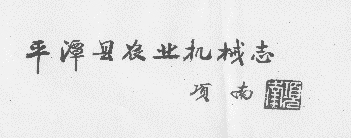 平潭县农业机械志
项南